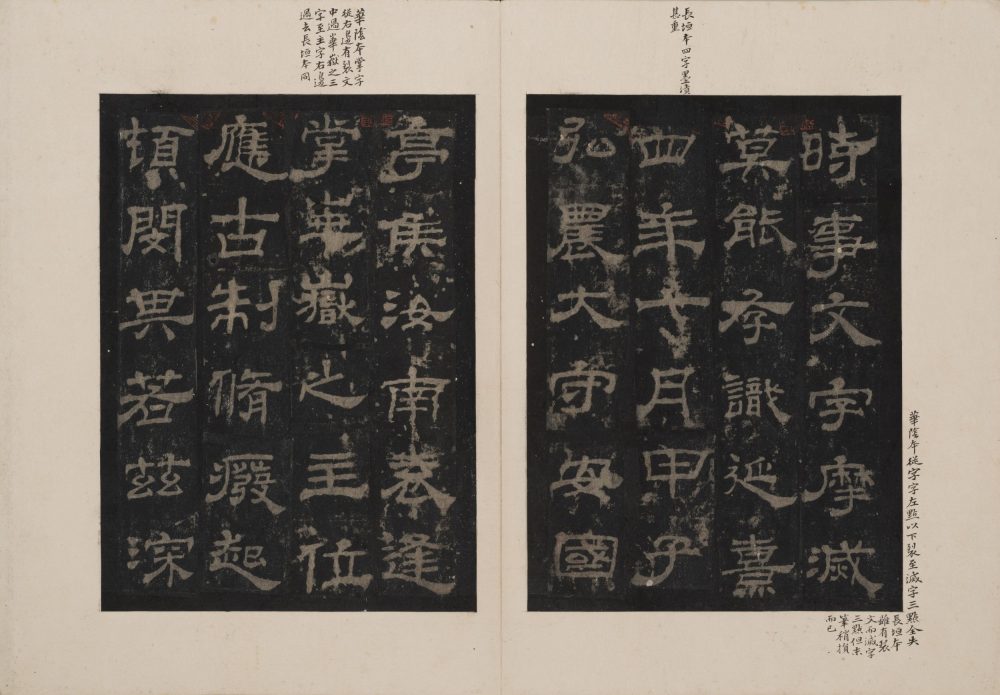 長垣本四字墨漬
甚重
華陰本從字字左點以下裂至滅字三點全失
長垣本
雖有裂
文而滅字
三點但末
筆稍損
而已
時事文字摩滅
莫能存識延熹
四年七月甲子
弘農大守安國
華陰本掌字
從右邊有裂文
中過華嶽之三
字至主字右邊
過去長垣本同
亭侯汝南袁逢
掌華嶽之主位
應古制脩癈起
頓閔其若茲深